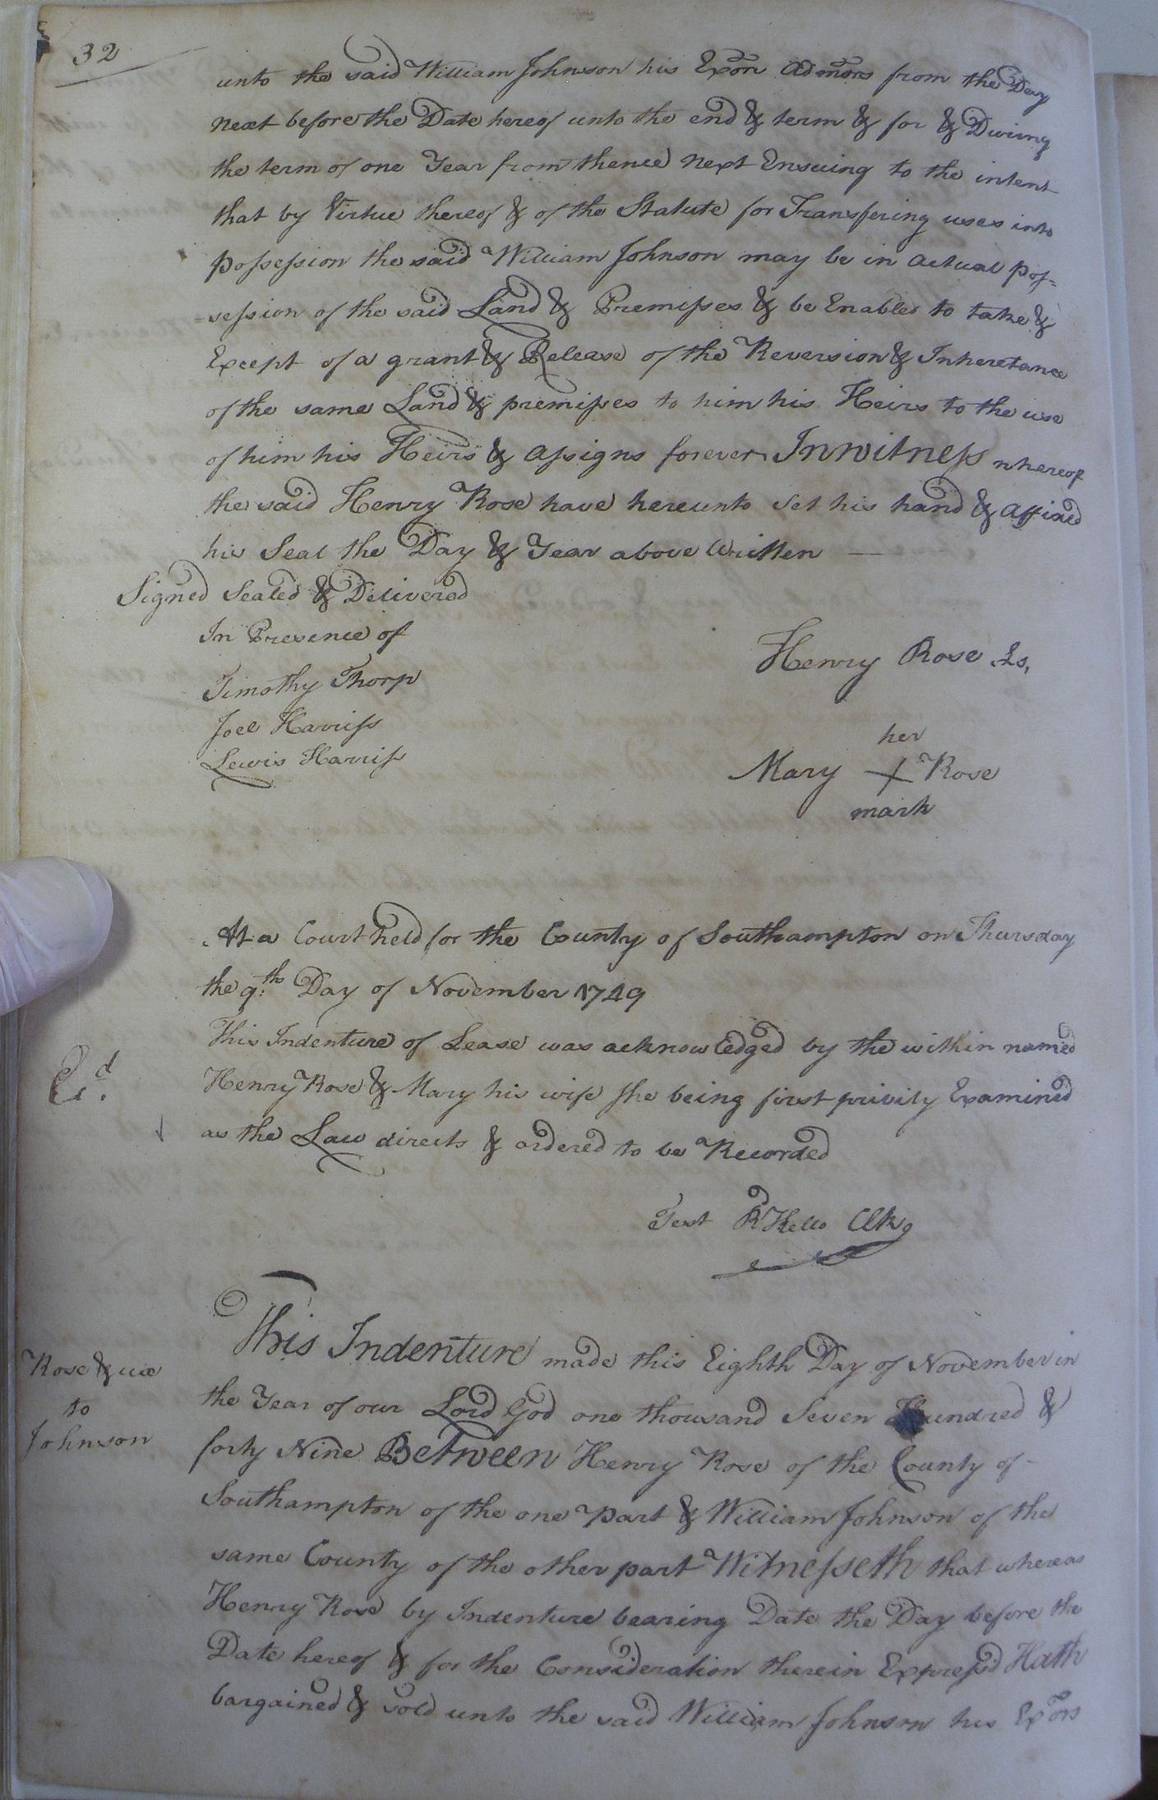 32
unto the said William Johnson his Exors Admors from the Day
next before the Date hereof unto the end & term & for & During
the term of one Year from thence Next Ensuing to the intent
that by Virtue thereof & of the Statute for Transfering uses into
possession the said William Johnson may be in actual pos-
session of the said Land & Premisses & be Enabled to take &
Except of a grant & Release of the Reversion & Inheretance
of the same Land & premisses to him his Heirs to the use
of him his Heirs & assigns forever In witness whereof
the said Henry Rose have hereunto set his hand & affixed
his Seal the Day & Year above Written
Signed Sealed & Delivered
In Presence of
Timothy Thorp
Joel Harriss
Lewis Harriss
Henry Rose Ls,
her
Mary + Rose
mark
At a Court held for the County of Southampton on Thursday
the 9th Day of November 1749
This Indenture of Lease was acknowledged by the within named
Henry Rose & Mary his wife she being first privily Examined
as the Law directs & ordered to be Recorded
Test R Kello Clk
This Indenture made this Eighth Day of November in
Rose & ux
to
Johnson
the Year of our Lord God one thousand Seven Hundred &
forty Nine Between Henry Rose of the County of
Southampton of the one part & William Johnson of the
same County of the other part Witnesseth that whereas
Henry Rose by Indenture bearing Date the Day before the
Date hereof & for the Consideration therein Expressd Hath
bargained & sold unto the said William Johnson his Exors